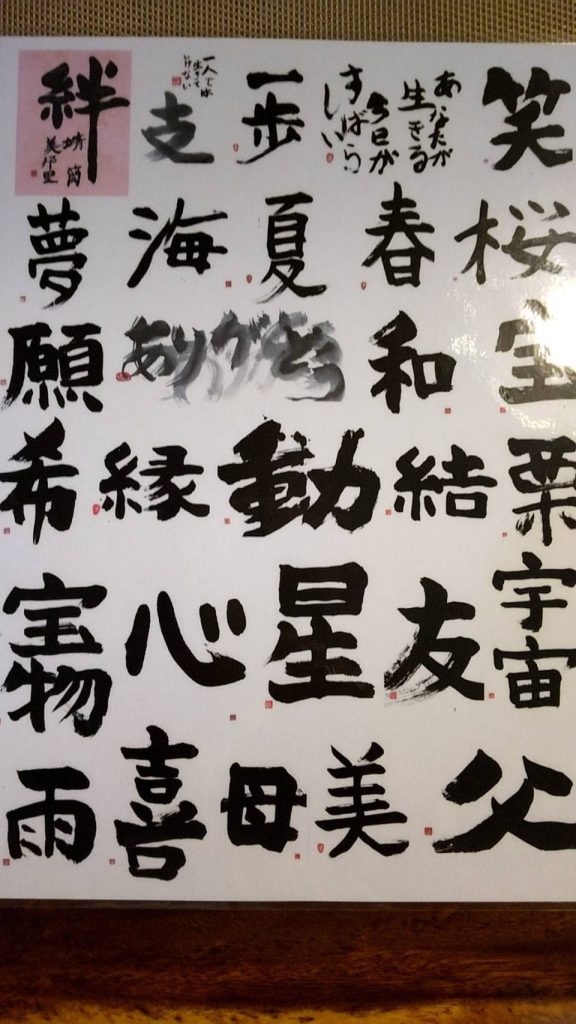 笑
あなたが
生きる
今日が
すばら
しい
一歩
一人では
生きて
行けない
支
絆
桜
春
夏
海
夢
宝
和
ありがとう
願
栗
結
動
縁
希
宇宙
友
星
心
宝物
父
美
母
喜
雨